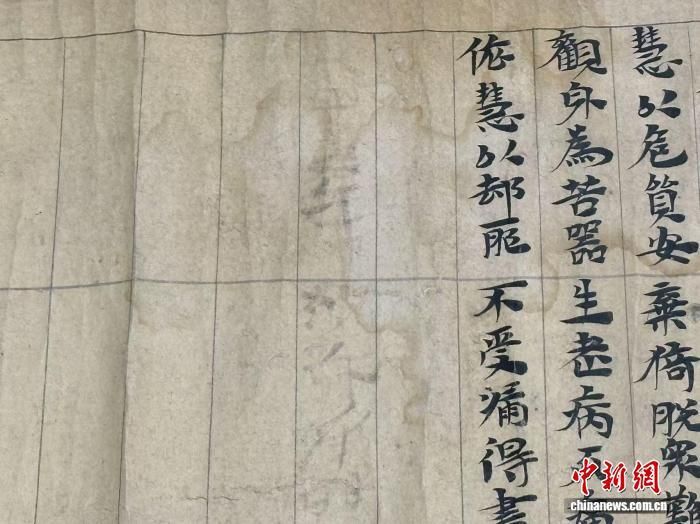 慧以危質安棄猗脫衆難
觀身為苦器生老病无
依慧以却耶不受漏得盡
中新網
chinanews.com.cn